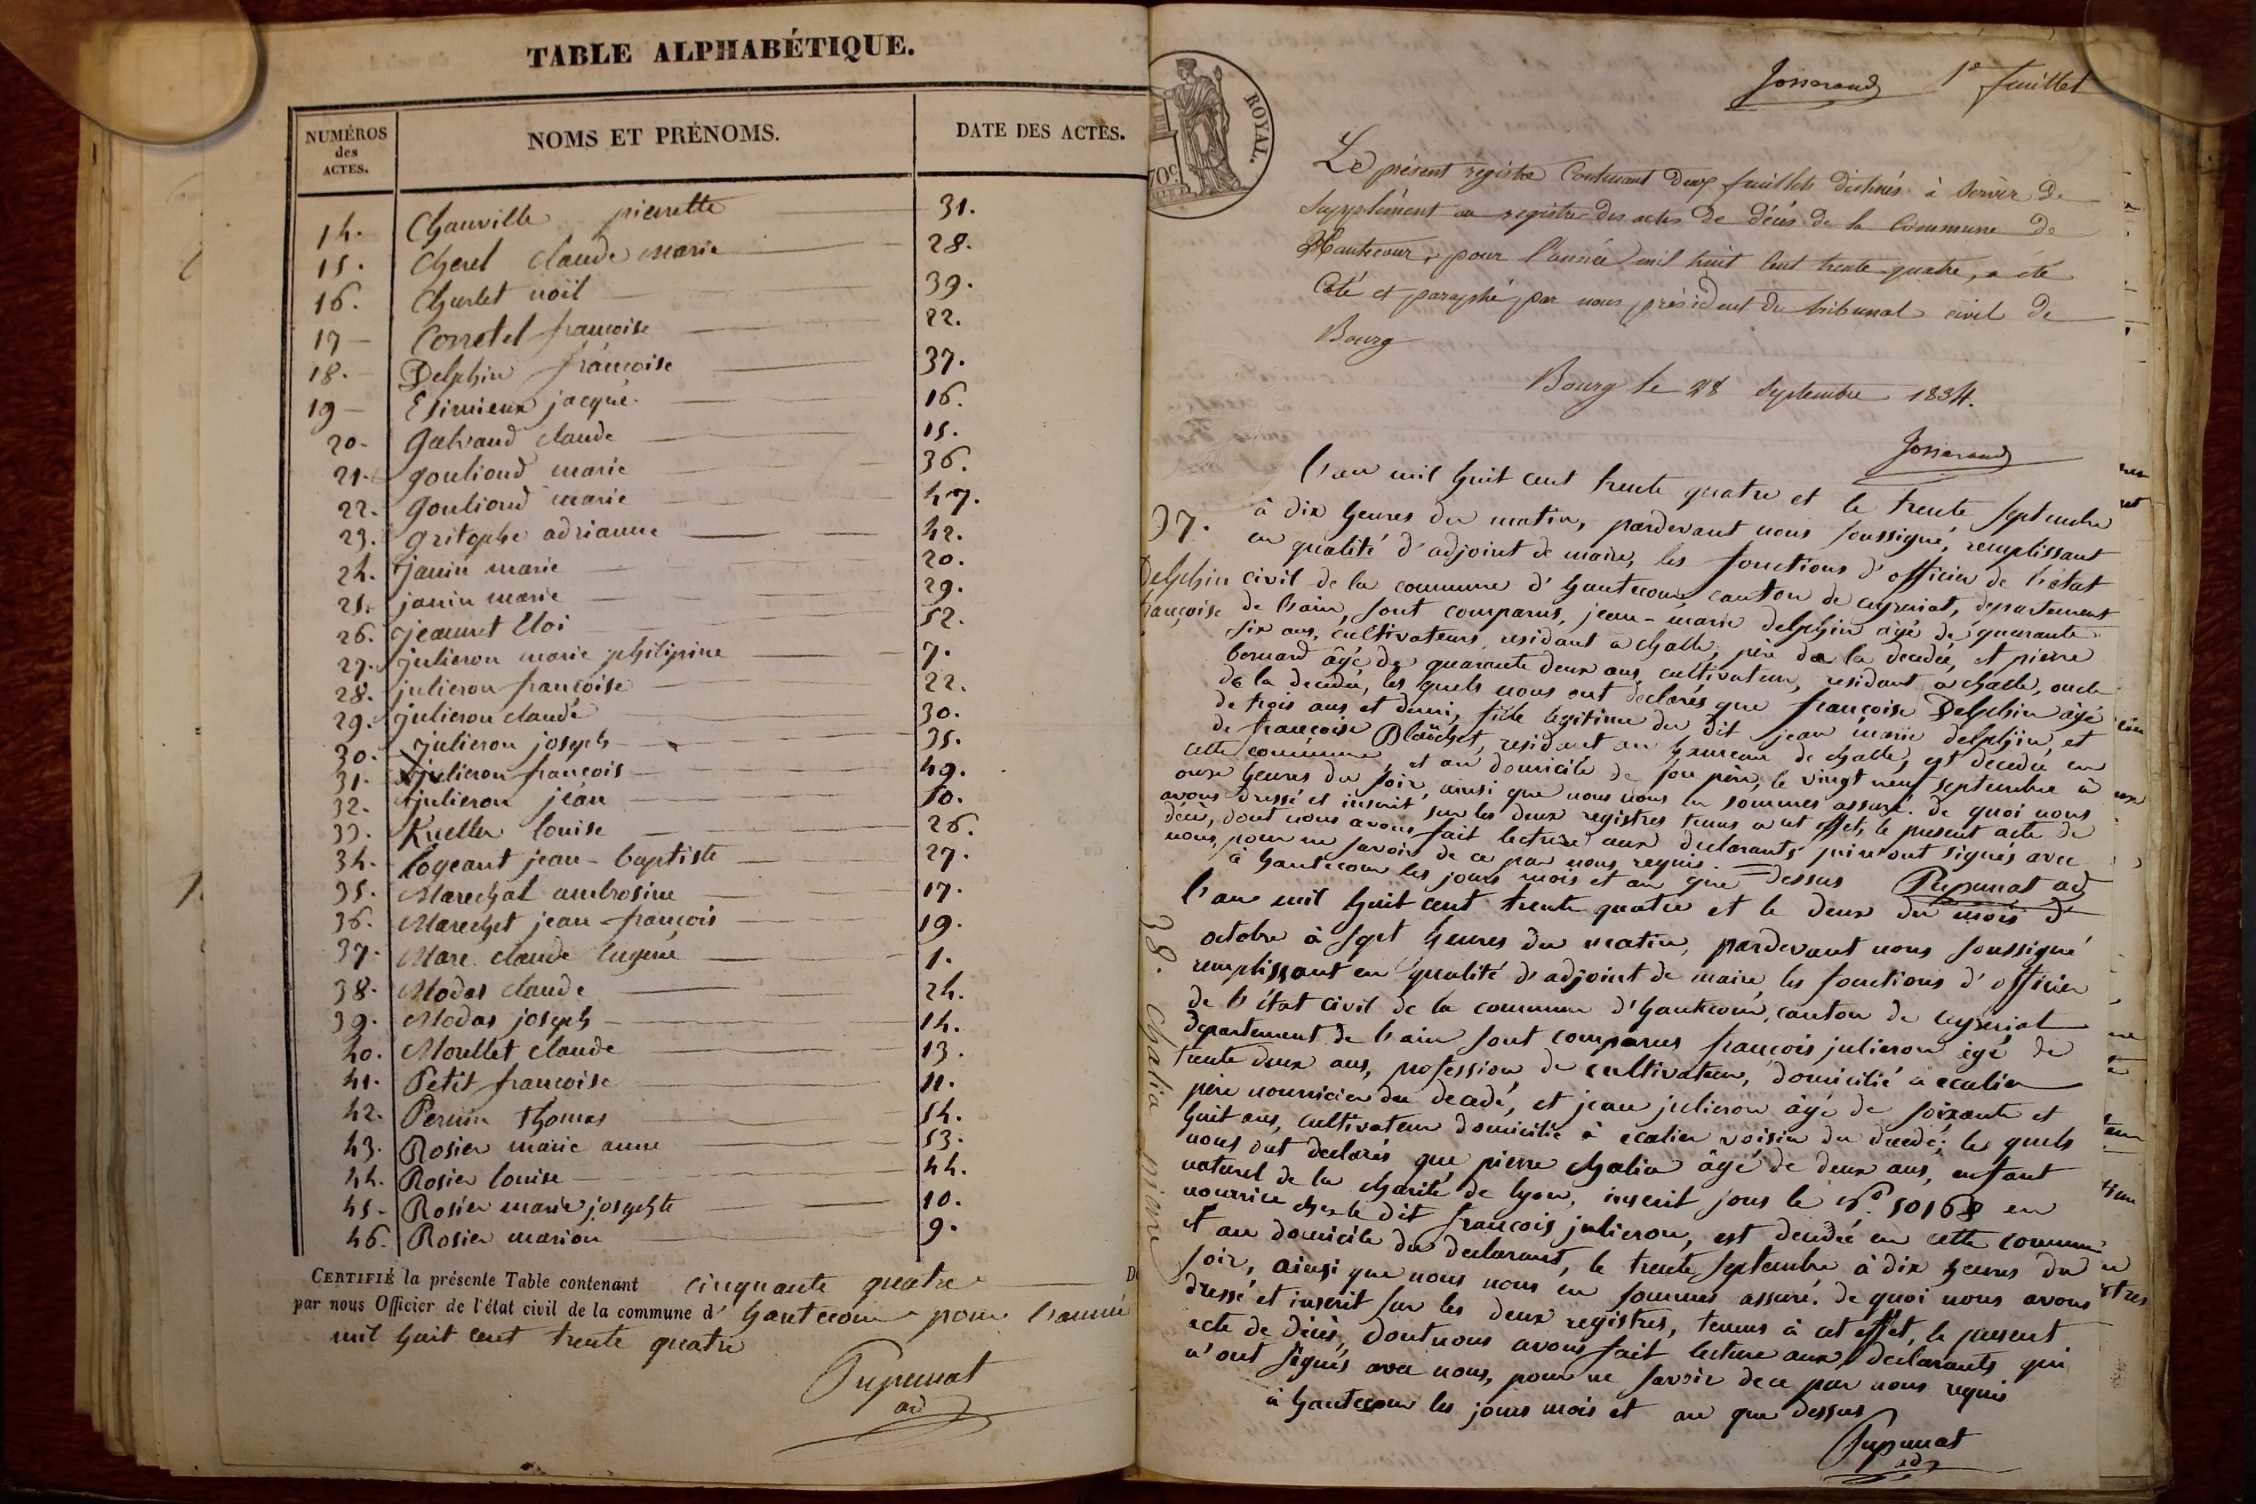 TABLE ALPHABÉTIQUE.
NUMÉROS des ACTES. NOMS ET PRÉNOMS. DATE DES ACTES.
14. Chanville pierrette 31.
15. Cherel claude marie 28.
16. Charlet noël 39.
17 Corretel françoise 22.
18. Delphin françoise 37.
19 Esimieux jacque 16.
20. Galvand claude 15.
21. gouliond marie 36.
22. gouliond marie 47.
23. gritophe adrianne 42.
24. janin marie 20.
25. janin marie 29.
26. jeannet Eloi 52.
27. julieron marie philipine 7.
28. julieron françoise 22.
29. julieron claude 30.
30. julieron joseph 35.
31. julieron françois 49.
32. julieron jean 50.
33. Kueller louise 26.
34. Logeant jean-baptiste 27.
35. Marechal ambrosine 17.
36. Marechet jean-françois 19.
37. Marc claude Eugené 1.
38. Modas claude 24.
39. Modas joseph 14.
40. Morellet claude 13.
41. Petit francoise 11.
42. Perrin thomas 54.
43. Rosier marie anne 53.
44. Rosier louise 44.
45. Rosier marie josephte 10.
46. Rosier marion 9.
CERTIFIÉ la présente Table contenant cinquante quatre
par nous Officier de l'état civil de la commune d' hautecour pour l'année
mil huit cent trente quatre
Pupunat
ad
ROYAL.
70c
Josserand 1e feuillet
Le présent registre Contenant Deux feuillets destinés à Servir de
Supplément au registre des actes de décès de la Commune de
Hautecour, pour l'année mil huit Cent trente-quatre, a été
Coté et paraphé par nous président du tribunal civil de
Bourg
Bourg le 28 Septembre 1834.
Josserand
37.
Delphin
françoise
L'an mil huit cent trente quatre et le trente septembre
à dix heures du matin, pardevant nous soussigné, remplissant
en qualité d'adjoint de maire, les fonctions d'officier de l'état
civil de la commune d'hautecour canton de ceyzeriat, departement
de l'ain, sont comparus, jean-marie delphin âgé de quarante
six ans, cultivateurs, residant a challe, père de la decedée, et pierre
bernard âgé de quarante deux ans, cultivateur, residant a challe, oncle
de la decedée, les quels nous ont declarés que françoise Delphin âgé
de trois ans et demi, fille legitime du dit jean marie delphin, et
de françoise Blanchet, residant au hameau de challe, est decedée en
cette commune, et au domicile de son père, le vingt neuf septembre à
onze heures du soir, ainsi que nous nous en sommes assuré. de quoi nous
avons dressé et inscrit sur les deux registres tenus a cet effet, le present acte de
décès, dont nous avons fait lecture aux declarants qui n'ont signés avec
nous, pour ne savoir de ce par nous requis.
à hautecour les jours mois et an que dessus Pupunat ad
38. chalia pierre
L'an mil huit cent trente quatre et le deux du mois d'
octobre à sept heures du matin, pardevant nous soussigné
remplissant en qualité d'adjoint de maire, les fonctions d'officier
de l'état civil de la commune d'hautecour, canton de ceyzeriat
departement de l'ain sont comparus françois julieron âgé de
trente deux ans, profession de cultivateur, domicilié a ecalia
père nourricier du decedé, et jean julieron âgé de soixante et
huit ans, cultivateur domicilié à ecalier voisin du decedé; les quels
nous ont declarés que pierre chalia âgé de deux ans, enfant
naturel de la charité de lyon, inscrit sous le no. 50168 en
nourrice chez le dit françois julieron, est decedé en cette commune
et au domicile du declarant, le trente septembre à dix heures du
soir, ainsi que nous nous en sommes assuré. de quoi nous avons
dressé et inscrit sur les deux registres, tenus à cet effet, le present
acte de décès, dont nous avons fait lecture aux declarants qui
n'ont signés avec nous, pour ne savoir de ce par nous requis
à hautecour les jours mois et an que dessus
Pupunat
ad